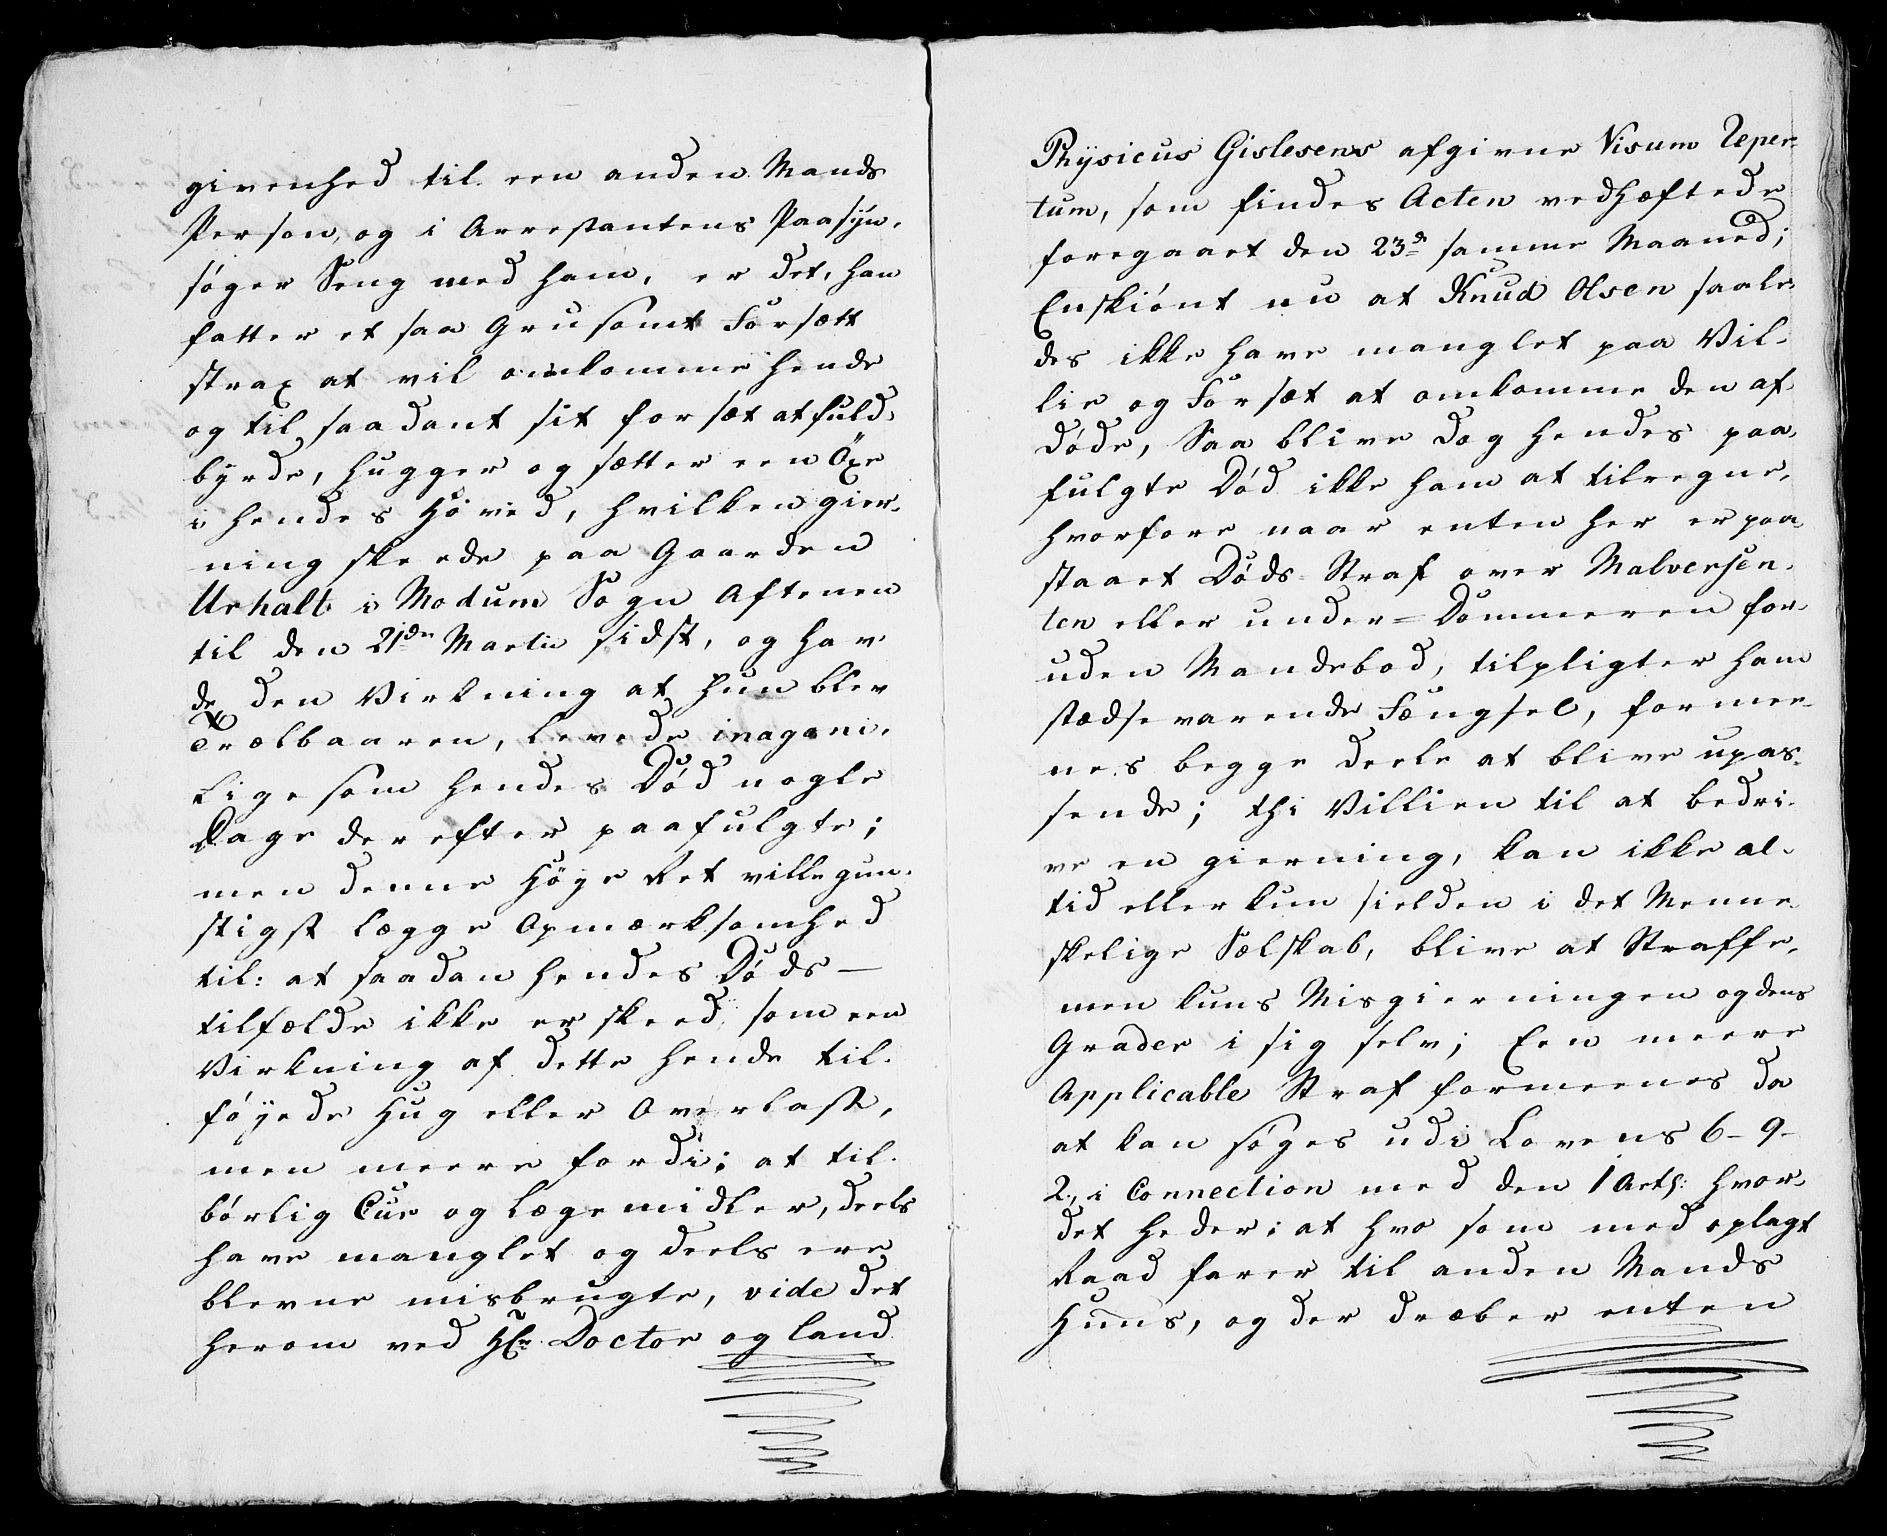 givenhed til een anden Mands
Person, og i Arrestantens Paasyn,
søger Seng med ham, er det, han
fatter et saa Grusomt Forsætt
strax at vil omkomme hende
og til saadant sit forsæt at fuld-
byrde, hugger og sætter een Öxe
i hendes Hoved, hvilken gier-
ning skeede paa Gaarden
Urhalt i Modum Sogn Aftenen
til den 21de Martii sidst, og hav-
de den Virkning at hun blev
Trælbaaren, levede
Lige som hendes Død nogle
Dage derefter paafulgte;
men denne Höye Ret ville gun-
stigst lægge Opmærksomhed
til: at saadan hendes Døds-
tilfælde ikke er skeed, som een
Virkning af dette hende til-
føyede Hug eller Overlast,
men meere fordi; at til-
børlig Cur og Lægemidler, deels
have manglet og deels ere
blevne misbrugte, vide det
herom ved Hr. Doctor og land
Physicus Gislesens afgivne Visum Reper-
tum, som findes Acten vedhæftede
foregaaet den 23de samme Maaned;
Enskiønt nu at Knud Olsen saale-
des ikke have manglet paa Vil-
lie og Forsæt at omkomme den af-
døde, Saa blive dog hendes paa-
fulgte Død ikke ham at tilregne,
hvorfore naar enten her er paa-
staaet Døds-Straf over Malversen-
ten eller under-Dommeren for-
uden Mandebod, tilpligter ham
stædsevarende Fængsel, formee-
nes begge deele at blive upas-
sende; thi Villien til at bedri-
ve en gierning, kan ikke al-
tid eller kun sielden i det Menne-
skelige Sælskab, blive at Straffe,
men kuns Misgierningen og dens
Grader i sig selv; Een meere
Applicable Straf formeenes da
at kan søges udi Lovens 6-9-
2, i Connection med den 1 Art: hvor-
det heder: at hvo som med oplagt
Raad farer til anden Mands
Huus, og der dræber enten